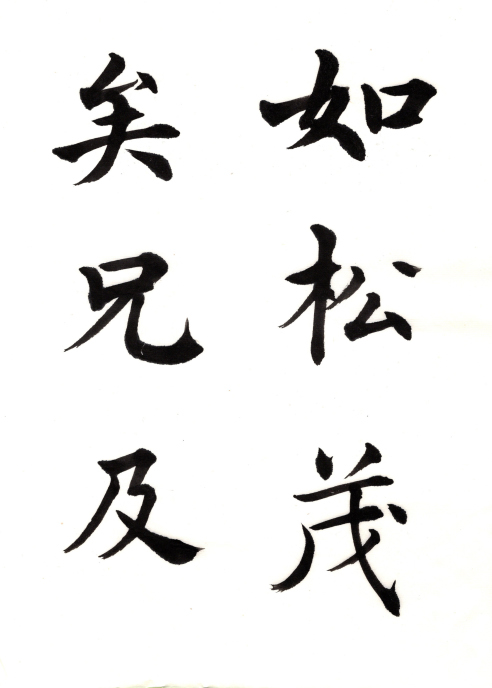 如松茂
矣兄及